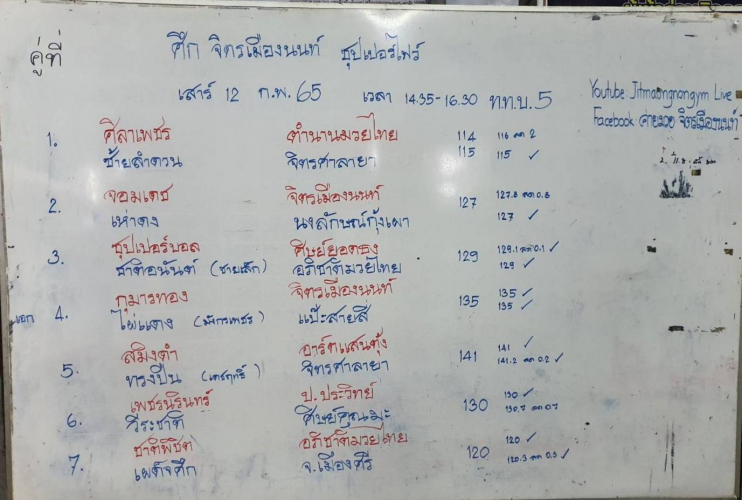 คู่ที่
ศึก จิตรเมืองนนท์ ซุปเปอร์ไฟว์
เสาร์ 12 ก.พ. 65 เวลา 14.35-16.30 ท.ท.บ. 5
Youtube Jitmuangnongym Live
Facebook ค่ายมวย จิตรเมืองนนท์
1. ศิลาเพชร ตำนานมวยไทย 114 116 ลด 2
ซ้ายลำดวน จิตรศาลายา 115 115 ✓
2. จอมเดช จิตรเมืองนนท์ 127 127.8 ลด 0.8
เห่าดง นงลักษณ์กุ้งเผา 127 ✓
3. ซุปเปอร์บอล ศิษย์ยอดธง 129 129.1 ลด 0.1 ✓
ชาติอนันต์ (ชายเล็ก) อภิชาติมวยไทย 129 ✓
กุมารทอง จิตรเมืองนนท์ 135 ✓
เอก 4. ไผ่แดง (มังกรเพชร) แป๊ะสายสี่ 135 135 ✓
สมิงดำ อาร์ตแสนตุ้ง 141 ✓
5. ทรงปืน (เดชฤทธิ์) จิตรศาลายา 141 141.2 ลด 0.2 ✓
เพชรนิรินทร์ ป.ประวิทย์ 130 ✓
6. วีระชาติ ศิษย์คุณมะ 130 130.7 ลด 0.7
ชาติพิชิต อภิชาติมวยไทย 120 ✓
7. เผด็จศึก จ.เมืองศรี 120 120.3 ลด 0.3 ✓